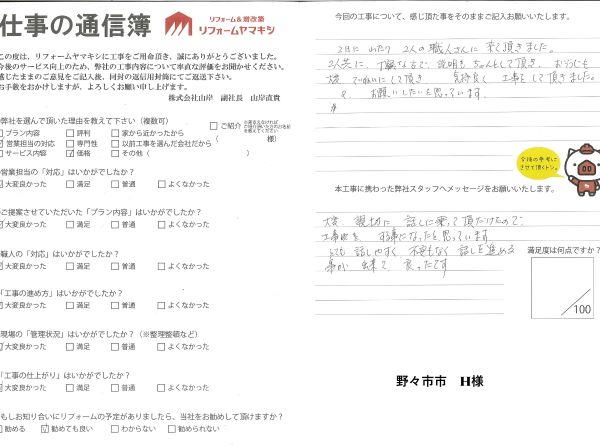 仕事の通信簿
リフォーム&増改築
リフォームヤマキシ
この度は、リフォームヤマキシに工事をご用命頂き、誠にありがとうございました。
今後のサービス向上のため、弊社の工事内容について率直な評価をお聞かせください。
感じたままのご意見をご記入後、同封の返信用封筒にてご返送下さい。
お手数をおかけしますが、よろしくお願い申し上げます。
株式会社山岸 副社長 山岸直貴
弊社を選んで頂いた理由を教えて下さい（複数可）
プラン内容 評判 家から近かったから
営業担当の対応 専門性 以前工事を選んだ会社だから
サービス内容 価格 その他（
ご紹介
（ 様）
営業担当の「対応」はいかがでしたか？
大変良かった 満足 普通 よくなかった
ご提案させていただいた「プラン内容」はいかがでしたか？
大変良かった 満足 普通 よくなかった
職人の「対応」はいかがでしたか？
大変良かった 満足 普通 よくなかった
「工事の進め方」はいかがでしたか？
大変良かった 満足 普通 よくなかった
現場の「管理状況」はいかがでしたか？（※整理整頓など）
大変良かった 満足 普通 よくなかった
「工事の仕上がり」はいかがでしたか？
大変良かった 満足 普通 よくなかった
もしお知り合いにリフォームの予定がありましたら、当社をお勧めして頂けますか？
勧める 勧めても良い わからない 勧められない
今回の工事について、感じ頂た事をそのままご記入お願いいたします。
2日に わたり 2人の職人さんに 来て頂きました。
2人共に、丁寧な方で、説明も ちゃんとして頂き、
大変 ていねいにして頂き 気持良く 工事をして頂きました。
お願いしたいと思っています。
今後の参考に
させて頂くトン。
本工事に携わった弊社スタッフへメッセージをお願いいたします。
大変 親切に 話しに乗って頂だけたので、
工事を する事になったと思っています
とても 話しやすく 不安もなく 話しを進める
事が 出来て 良ったです
満足度は何点ですか？
/100
野々市市 H様